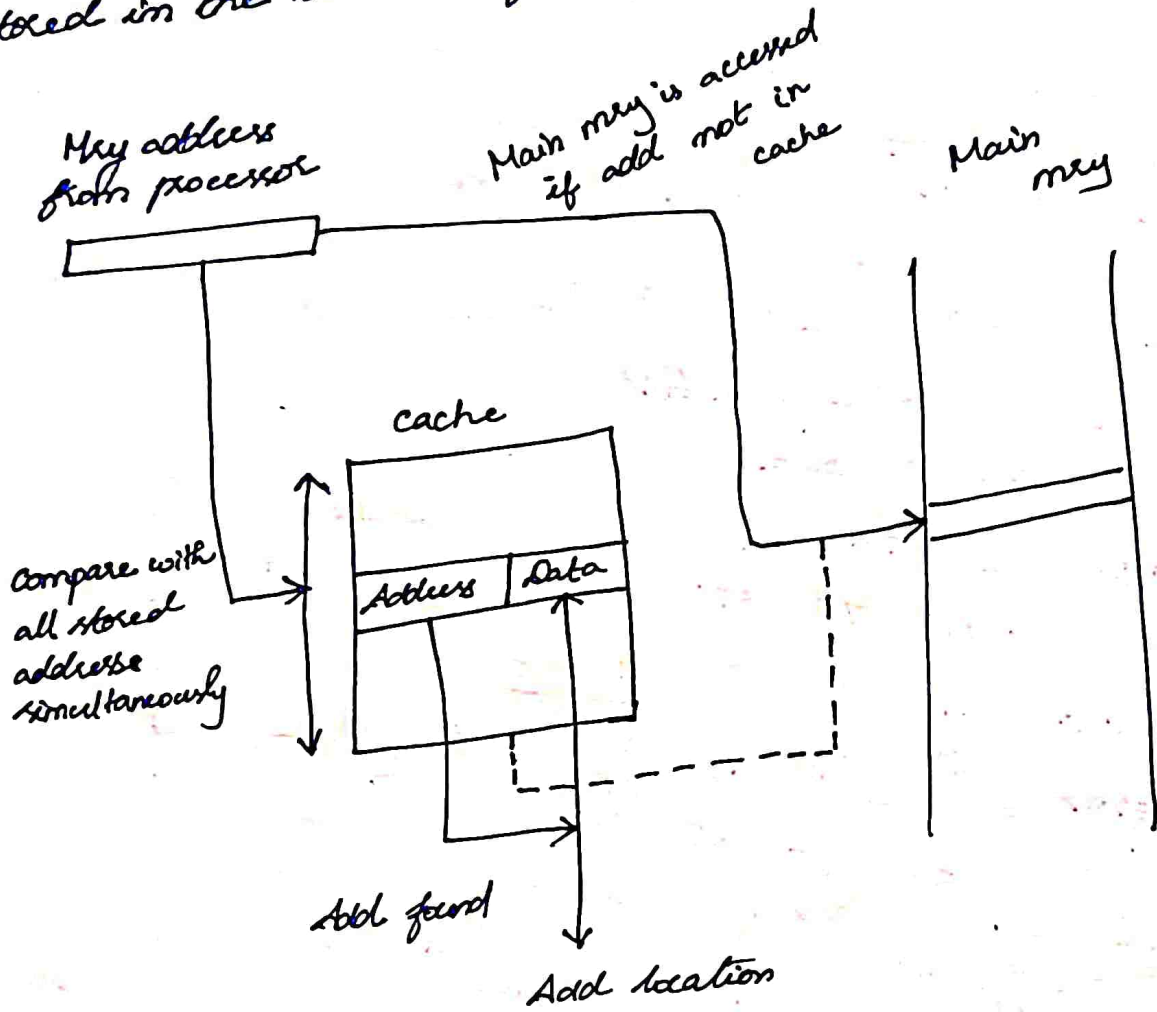 stored in the
Mry address
from processor
Main mry is accessed
if add not in
cache
Main
mry
cache
Compare with
all stored
addresse
simultaneously
Address
Data
Add found
Add location